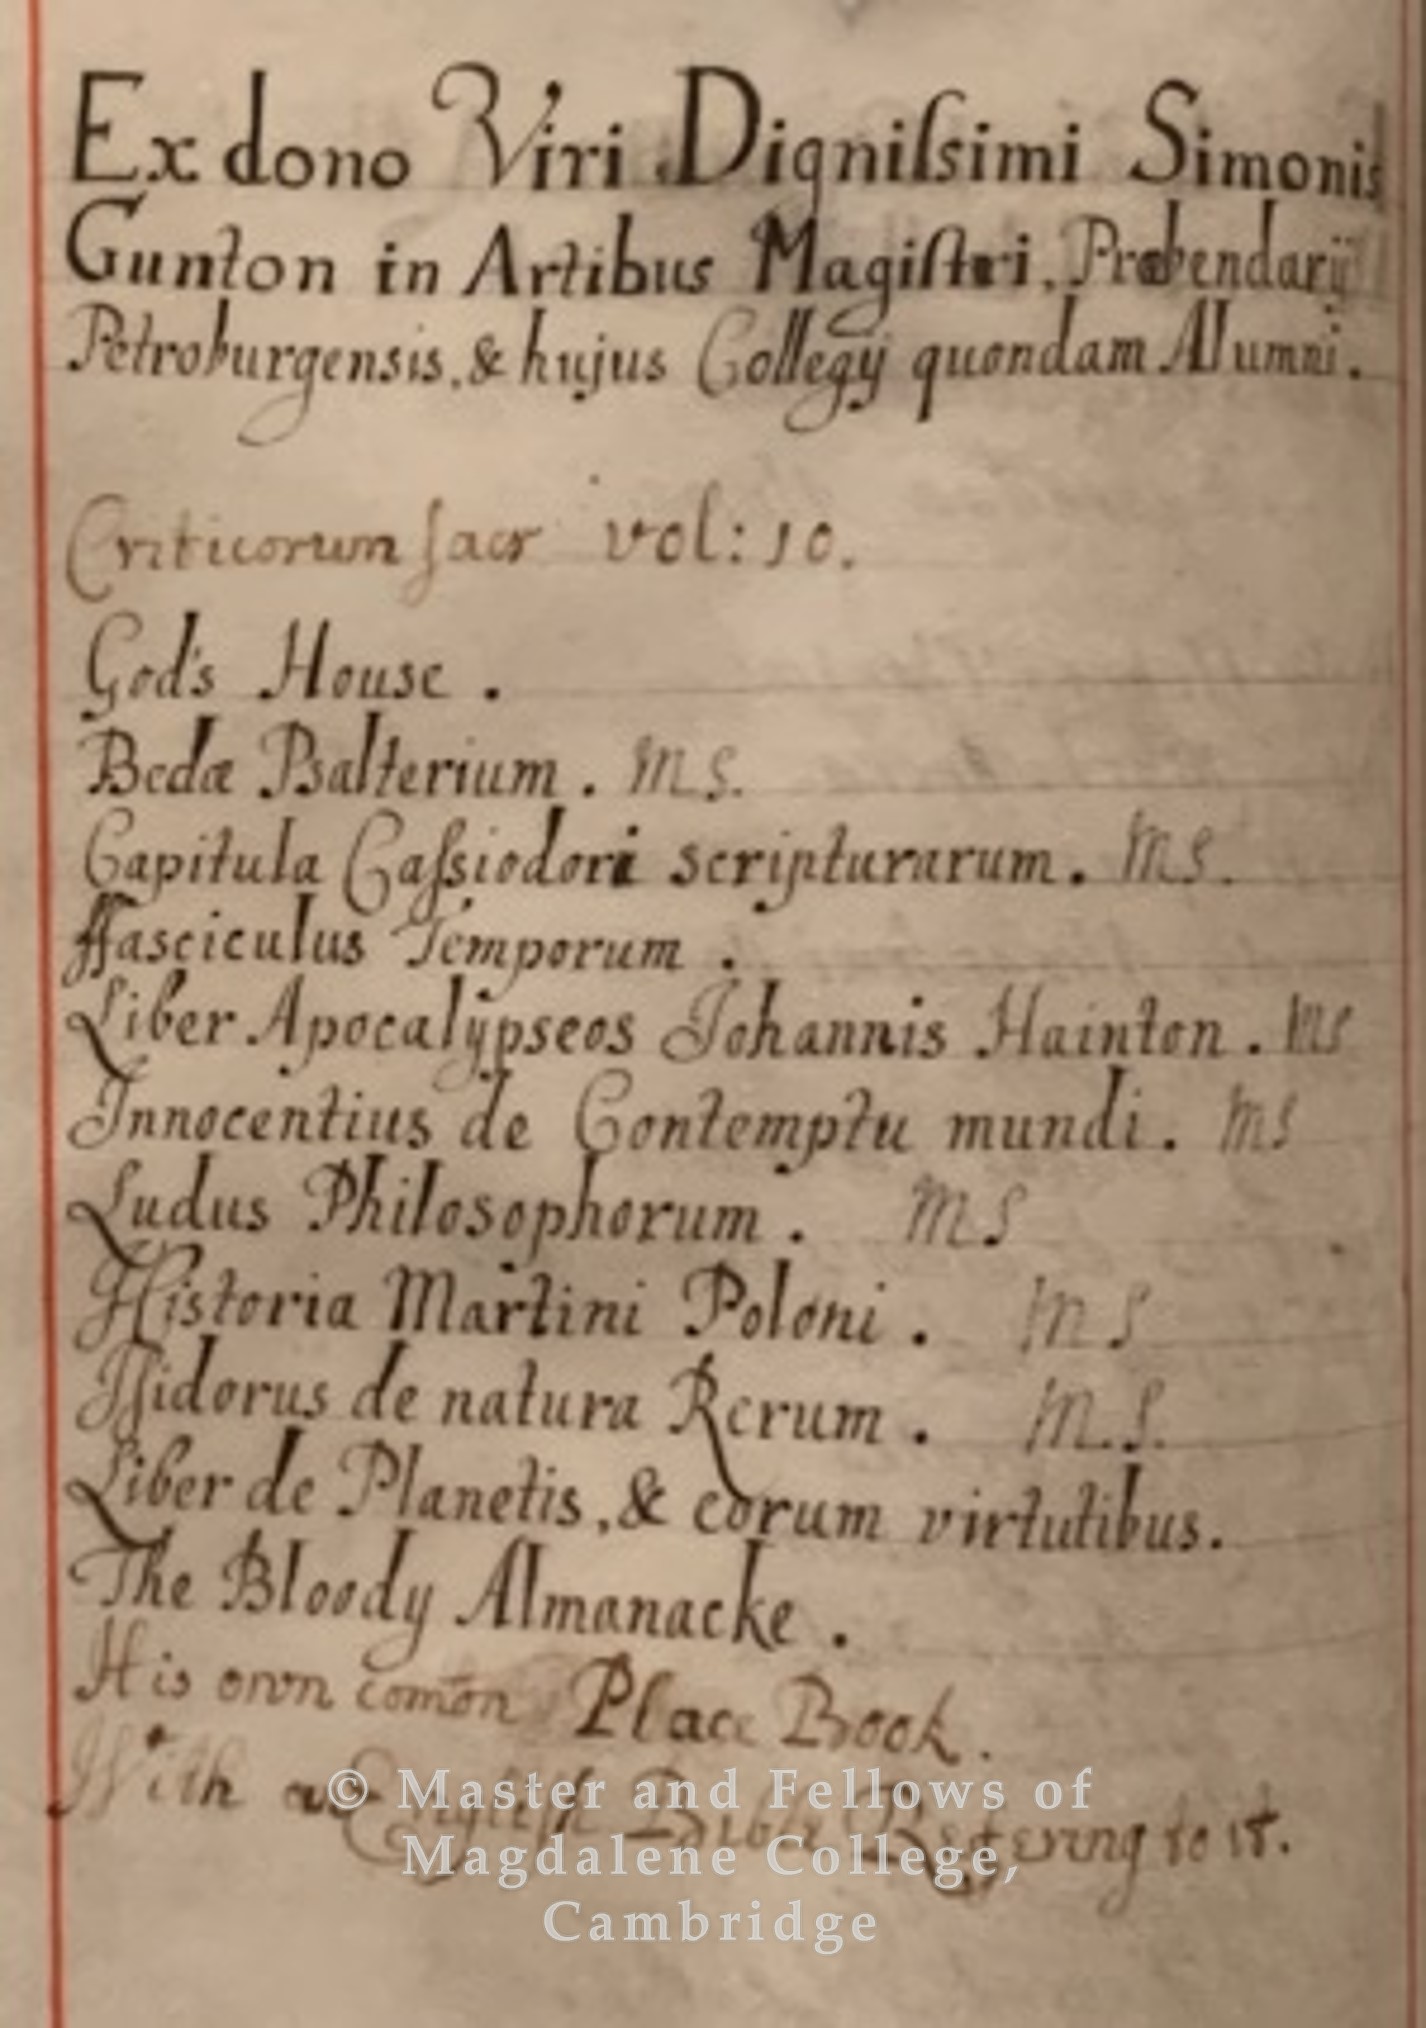 Ex dono Viri Digniſsimi Simonis
Gunton in Artibus Magiſtri, Præbendarij
Petroburgensis, & hujus Collegij quondam Alumni.
Criticorum ſacr vol: 10.
God's House.
Bedæ Psalterium. MS.
Capitula Caſsiodori scripturarum. MS.
ffasciculus Temporum.
Liber Apocalÿpseos Johannis Hainton. MS
Innocentius de Contemptu mundi. MS
Ludus Philosophorum. MS
Historia Martini Poloni. MS
Iſidorus de natura Rerum. M.S.
Liber de Planetis, & eorum virtutibus.
The Bloody Almanacke.
His own comōn Place Book.
With an Engliſh Bible Refering to it.
© Master and Fellows of
Magdalene College,
Cambridge